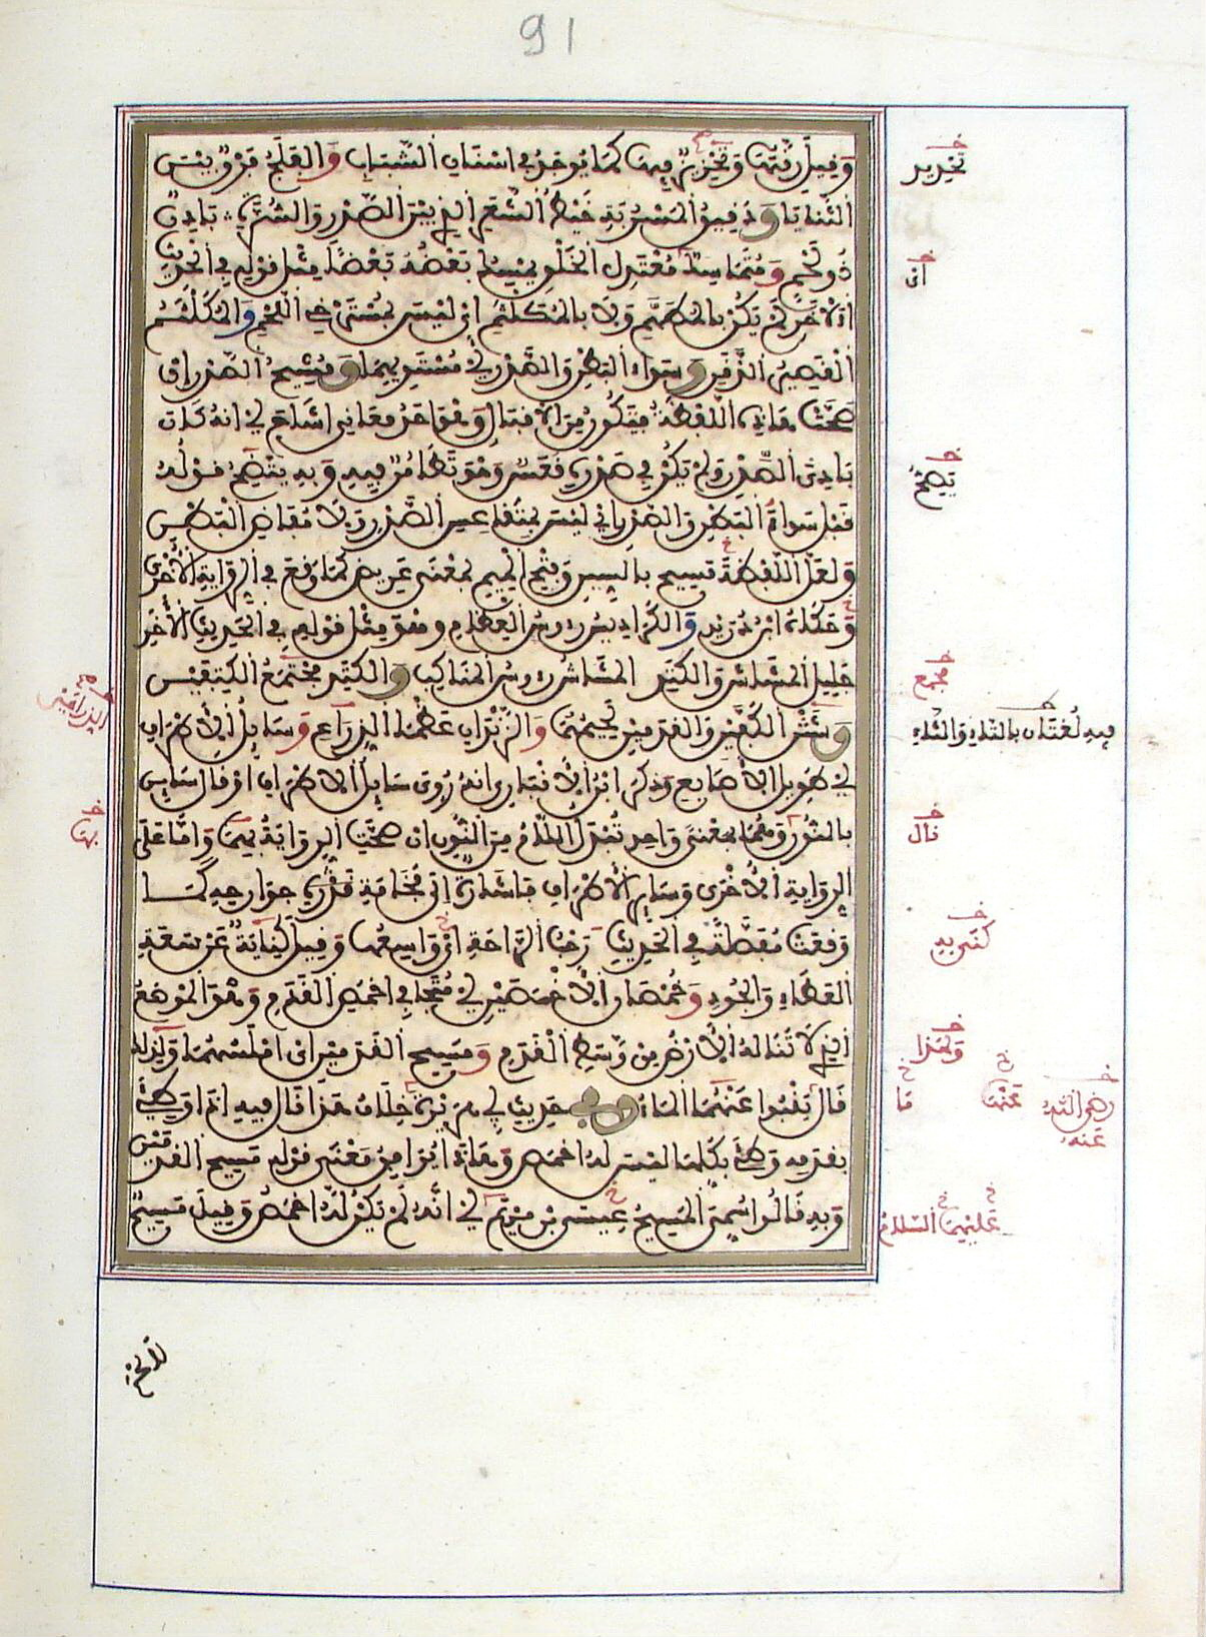 91
وقيل رقتها وتحزيز فيها كما يوجد في اسنان الشباب والفلج فرق بين
الثنايا ودقيق المسربة خيط الشعر الذي بين الصدر والسرة بادن
ذو لحم ومتماسك معتدل الخلق يمسك بعضه بعضا مثل قوله في الحديث
الاخر لم يكن بالمطهم ولا بالمكلثم اي ليس بمسترخي اللحم والمكلثم
القصير الذقن وسواء البطن والصدر اي مستويهما ومشيح الصدر ان
صحت هاذه اللفظة فتكون من الاقبال وهو احد معاني اشاح اي انه كان
بادي الصدر ولم يكن في صدره قعس وهو تطامن فيه وبه يتضح قوله
قبل سواء البطن والصدر اي ليس بمتقاعس الصدر ولا مفاض البطن
ولعل اللفظة مسيح بالسين وفتح الميم بمعنى عريض كما وقع في الرواية الاخرى
وحكاه ابن دريد والكراديس رءوس العظام وهو مثل قوله في الحديث الاخر
جليل المشاش والكتد المشاش رءوس المناكب والكتد مجتمع الكتفين
وشثن الكفين والقدمين لحيمهما والزندان عظما الذراع وسايل الاطراف
اي طويل الاصابع وذكر ابن الانباري انه روي سايل الاطراف او قال ساين
بالنون وهما بمعنى واحد تبدل اللام من النون ان صحت الرواية بهما واما على
الرواية الاخرى وساير الاطراف فاشارة الى فخامة قدره جوارحه كما
وقعت مفصلة في الحديث رحب الراحة اي واسعها وقيل كناية عن سعة
العطاء والجود وخمصان الاخمصين اي متجافي اخمص القدم وهو الموضع
الذي لا تناله الارض من وسط القدم ومسيح القدمين اي املسهما ولذلك
قال ينبوا عنهما الماء وفي حديث ابي هريرة خلاف هذا قال فيه اذا وطئ
بقدمه وطئ بكلها ليس له اخمص وهاذا يوافق معنى قوله مسيح القدمين
وبه قالوا سمي المسيح عيسى بن مريم اي انه لم يكن له اخمص وقيل مسيح
تحزيز
اي
يتضح
مجمع
فيه لغتان بالتاء والثاء
الذراعين
بها
قال
كفر يه
ولهذا
ما
عنه
رضي الله
عنه
عليهما السلام
لا لحم